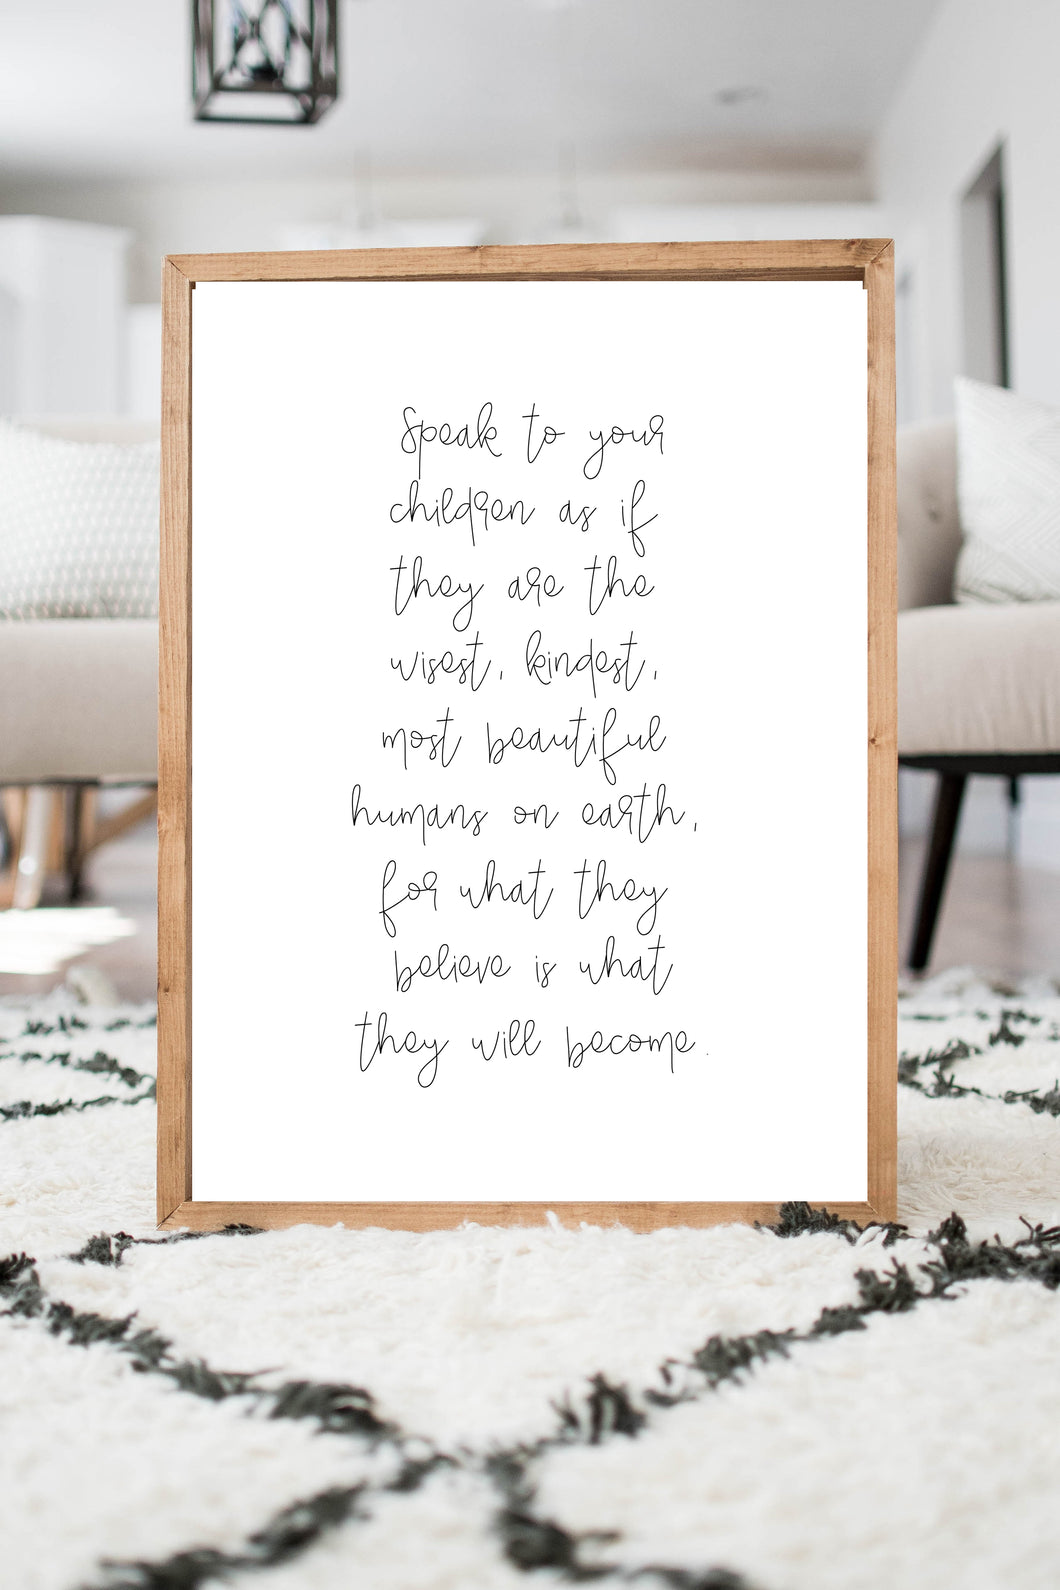 Speak to your
children as if
they are the
wisest, kindest,
most beautiful
humans on earth,
for what they
believe is what
they will become.